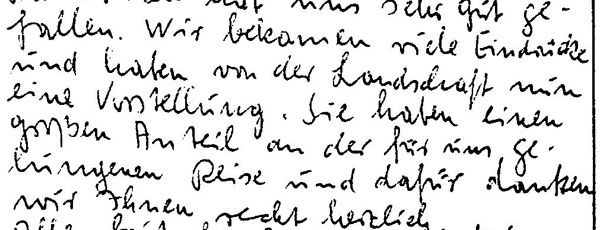 hat uns sehr gut ge-
fallen. Wir bekamen viele Eindrücke
und haben von der Landschaft nun
eine Vorstellung. Sie haben einen
großen Anteil an der für uns ge-
lungenen Reise und dafür danken
wir Ihnen recht herzlich